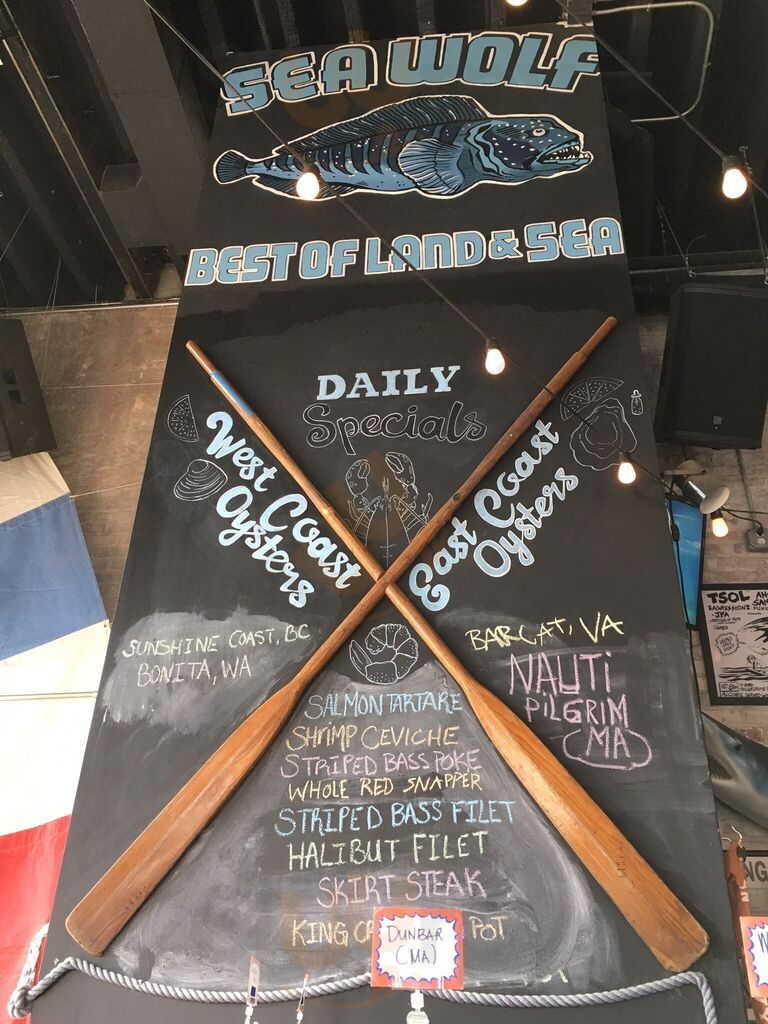 SEA WOLF
BEST OF LAND & SEA
DAILY
Specials
West Coast
Oysters
East Coast
Oysters
SUNSHINE COAST, BC
BONITA, WA
BARCAT, VA
NAUTI
PILGRIM
MA
SALMON TARTARE
SHRIMP CEVICHE
STRIPED BASS POKE
WHOLE RED SNAPPER
STRIPED BASS FILET
HALIBUT FILET
SKIRT STEAK
KING CR POT
DUNBAR
(MA)
TSOL
JFA